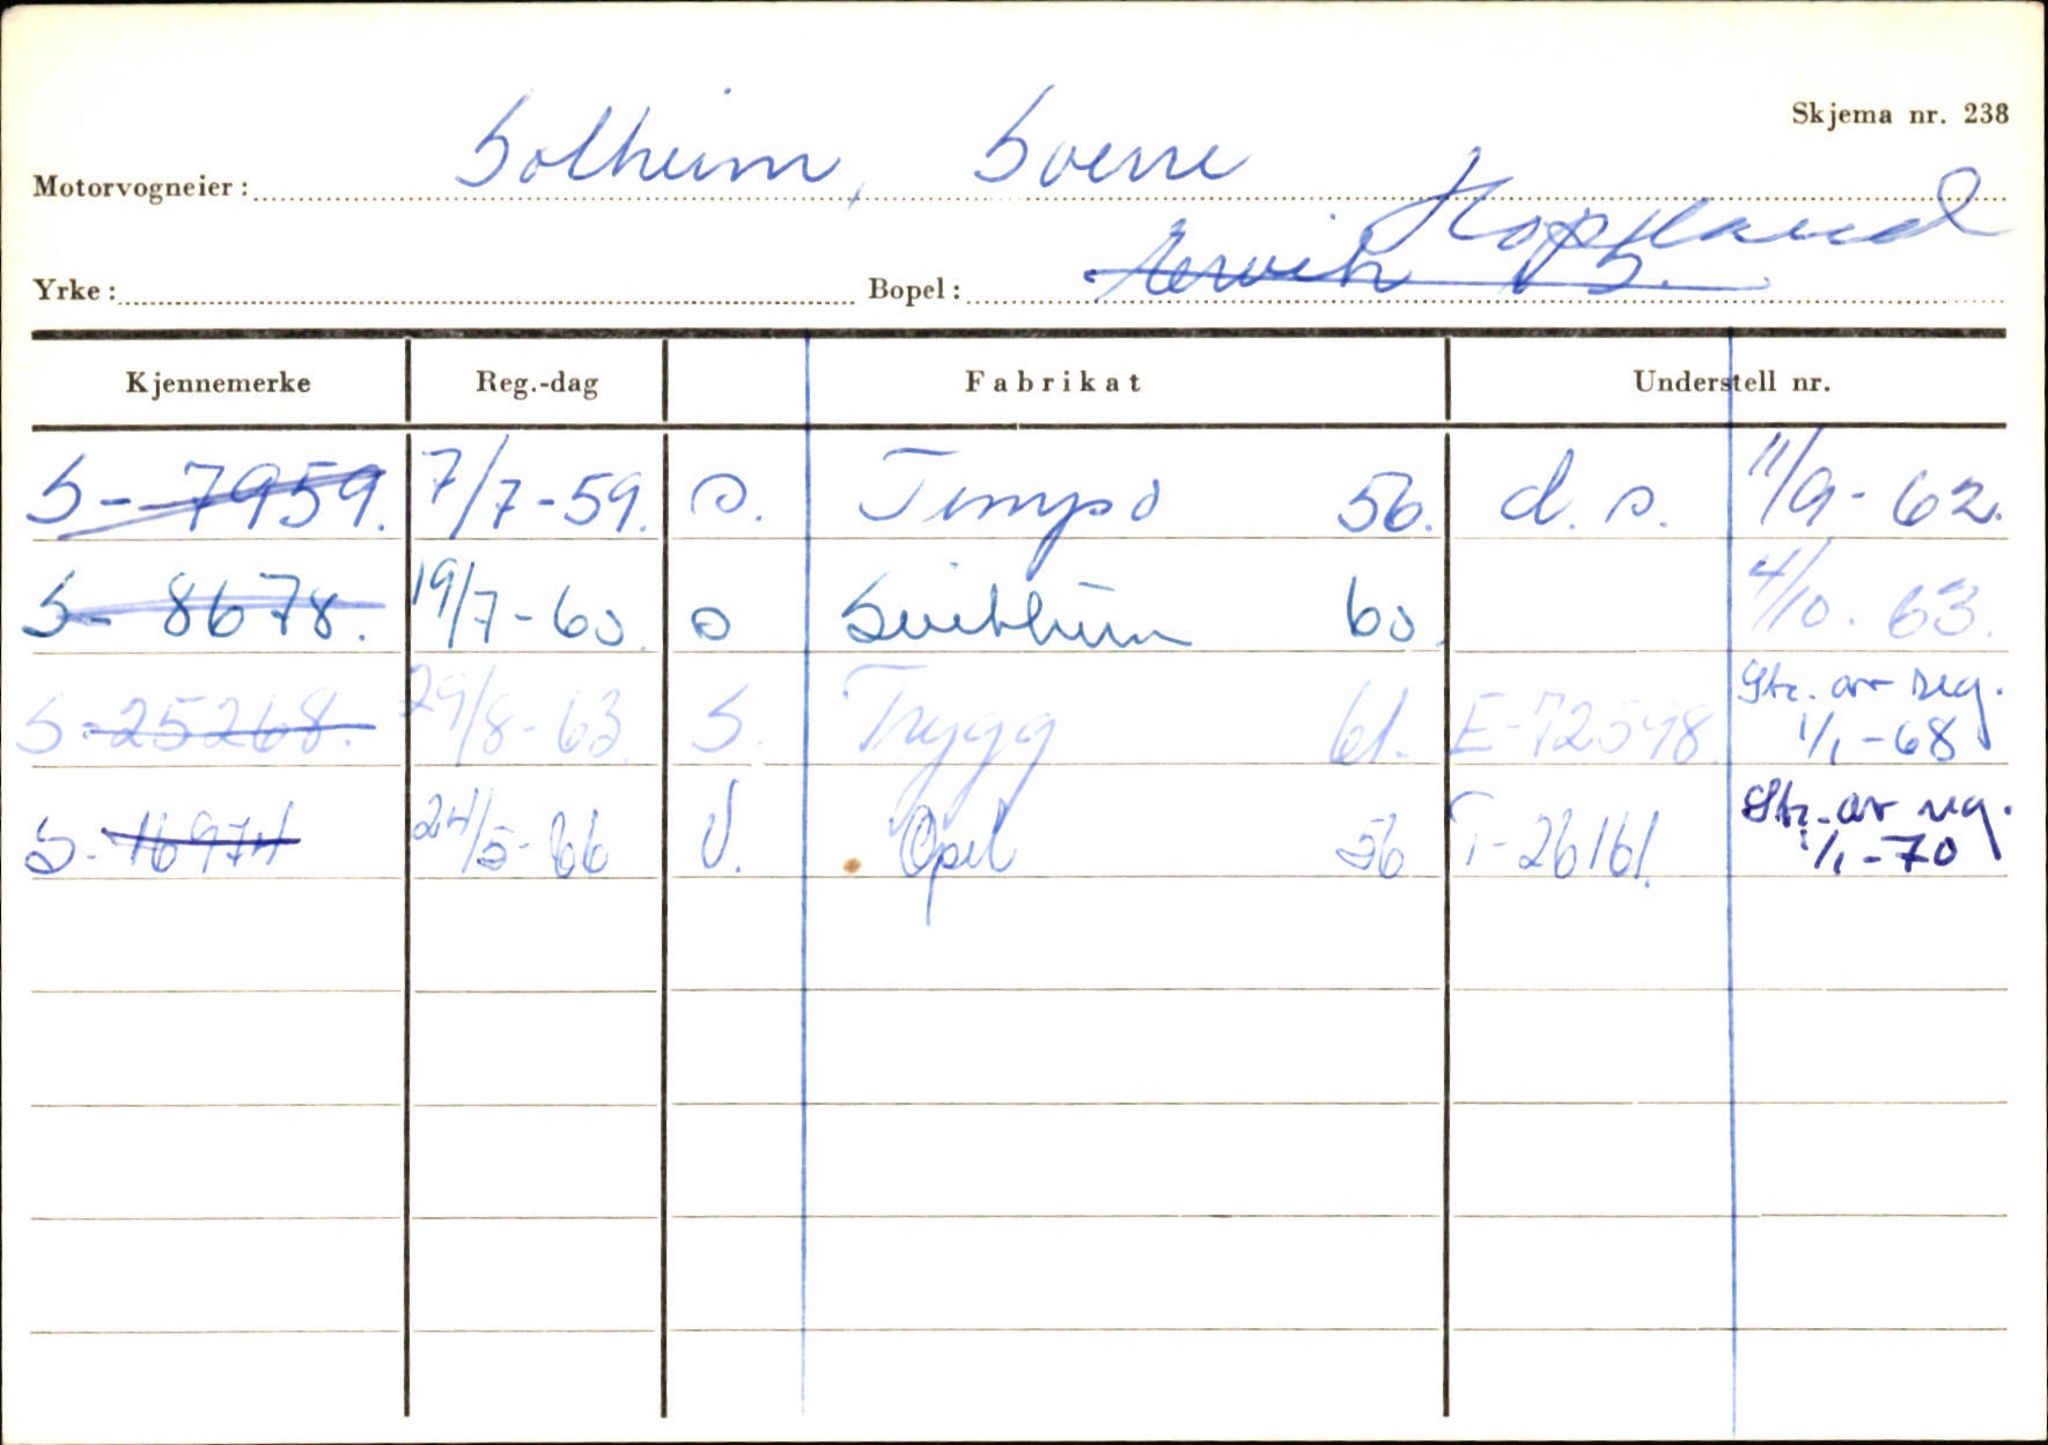 Skjema nr. 238
Motorvogneier: Solheim, Sverre
Hopland
Yrke: Bopel: Ervik PS.
Kjennemerke Reg.-dag Fabrikat Understell nr.
S-7959. 7/7-59. s. Tempo 56. d.s. 11/9-62.
S-8678. 19/7-60 s 60. 4/10.63.
S-25268. 29/8-63. S. Trygg 61. E-72598. Str. av reg. 1/1-68
S-16974 24/5-66 V. Opel 56 T-26161. Str. av reg. 1/1-70